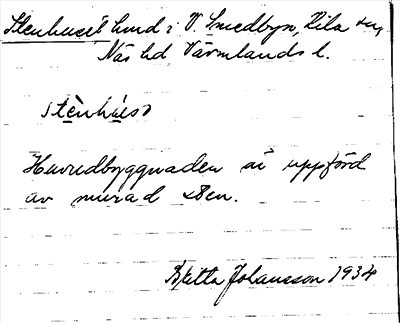 Stenhuset hmd i V. Smedbyn, Kila sn,
Näs hd, Värmlands l.
stènhúsə
Huvudbyggnaden är uppförd
av murad sten.
Britta Johansson 1934